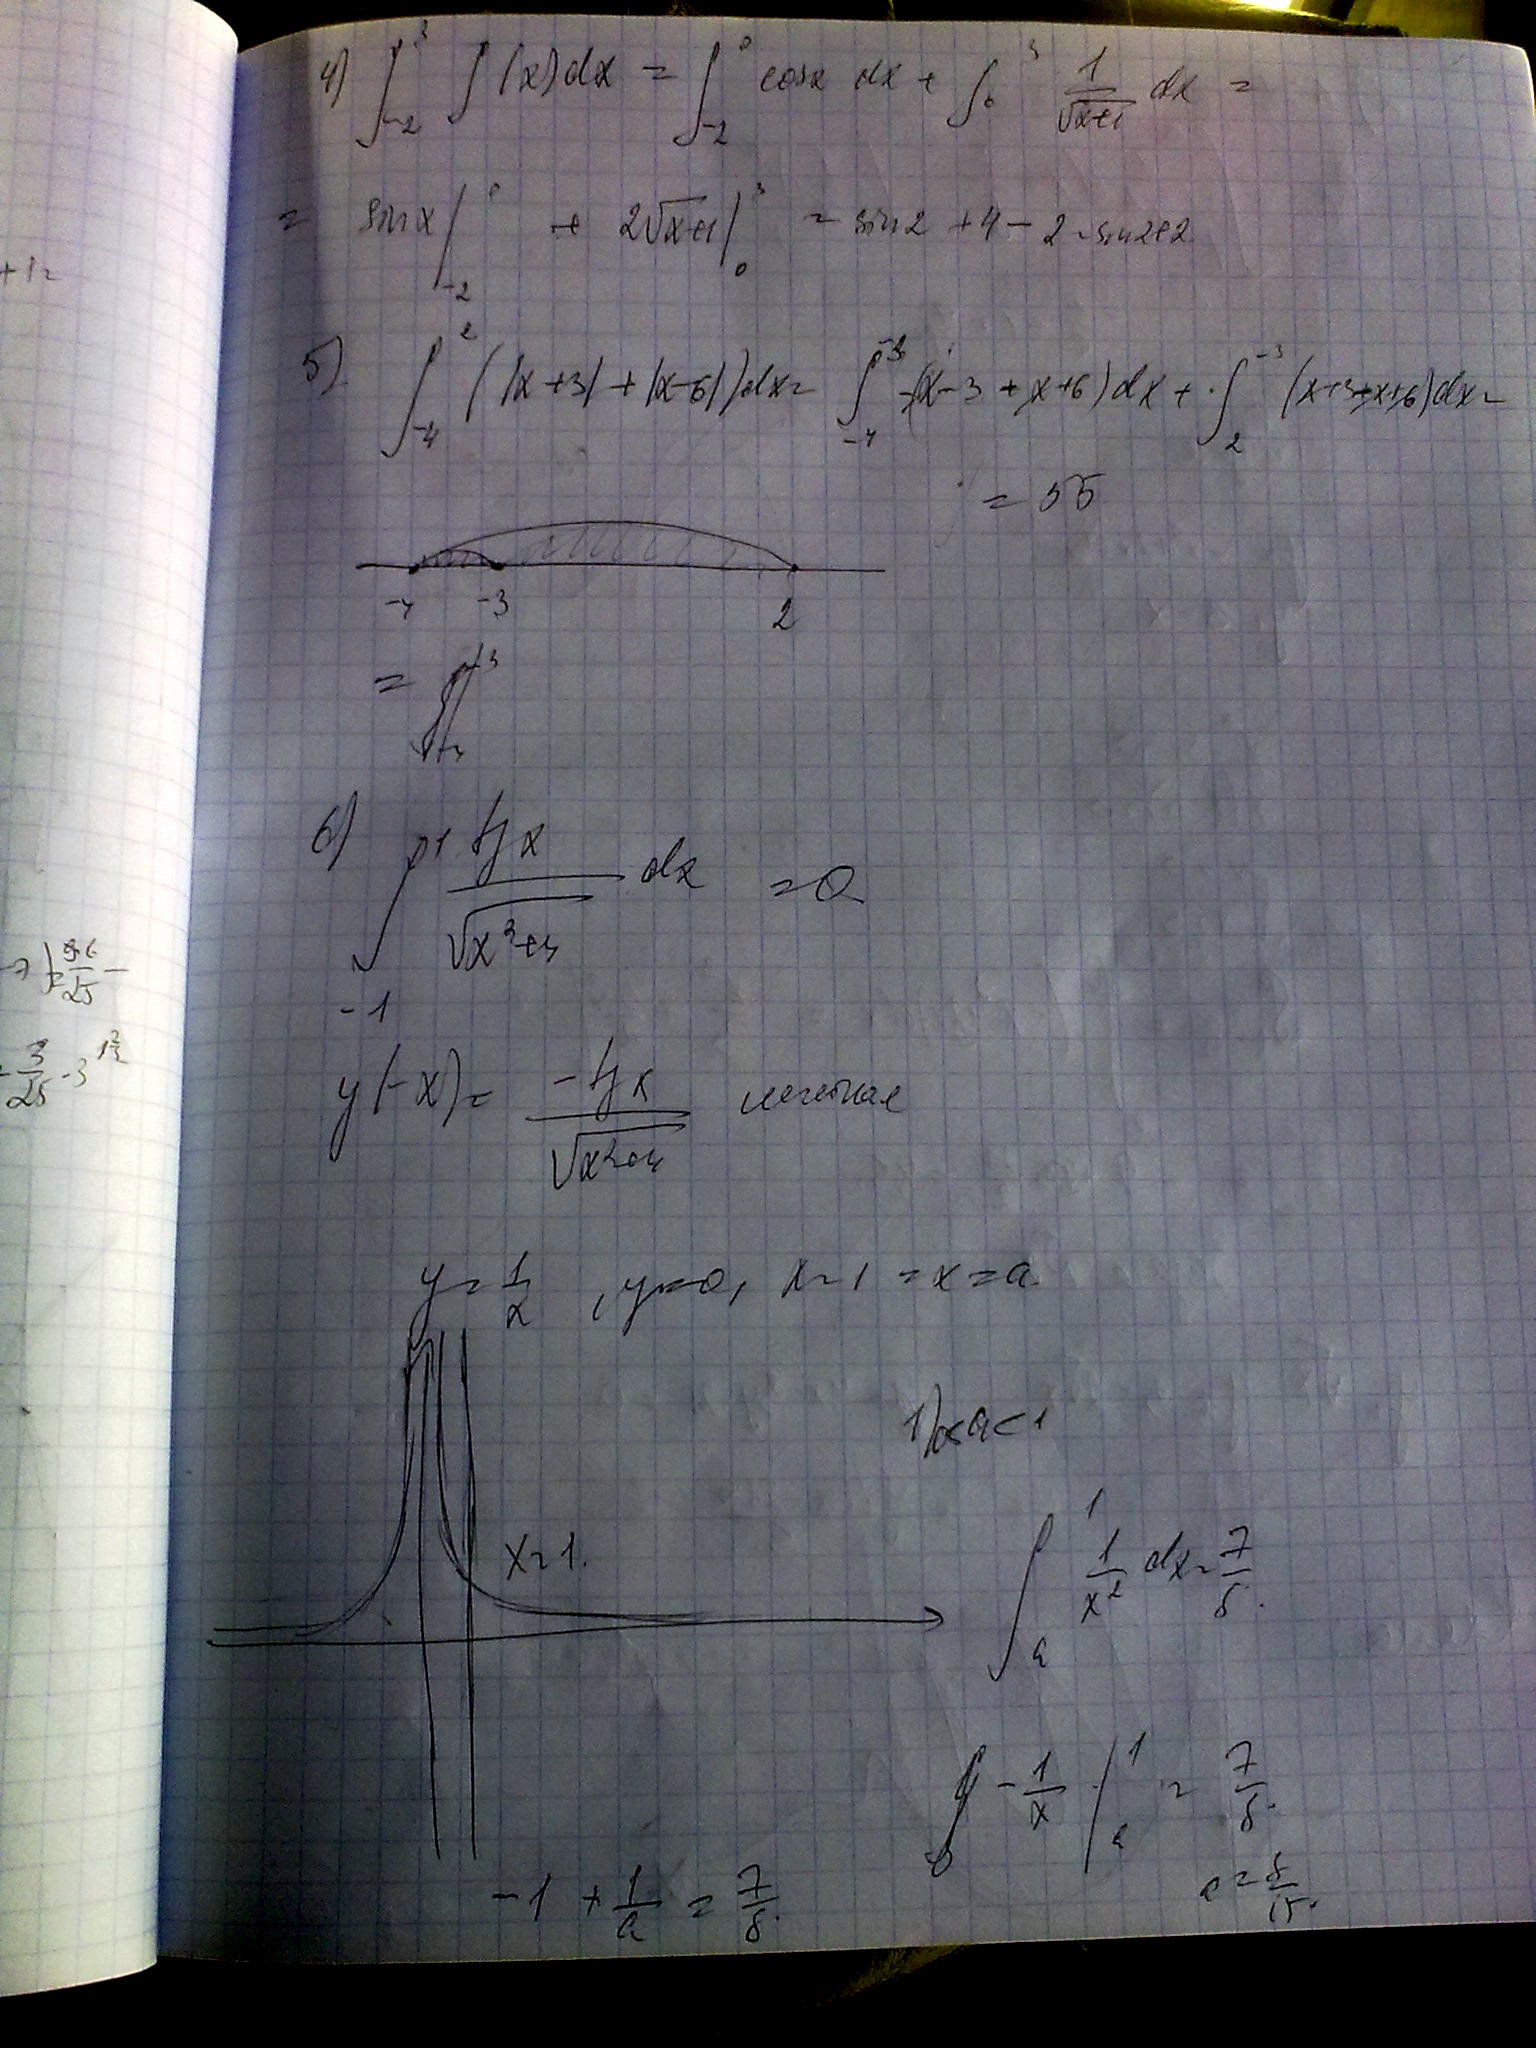 4) ∫_{-2}^{3} f(x)dx = ∫_{-2}^{0} cosx dx + ∫_{0}^{3} 1/√(x+1) dx =
= sinx |_{-2}^{0} + 2√(x+1) |_{0}^{3} = sin2 + 4 - 2 = sin2+2
5) ∫_{-4}^{2} (|x+3| + |x-6|)dx = ∫_{-4}^{-3} (-x-3 - x+6)dx + ∫_{2}^{-3} (x+3-x+6)dx =
= 55
-4 -3 2
= ∫
6) ∫_{-1}^{1} tgx/√(x²+4) dx = 0
y(-x) = -tgx/√(x²+4) нечетная
y = 1/x, y=0, x=1 = x=a
1) 0<a<1
x=1.
∫_{a}^{1} 1/x² dx = 7/8.
-1/x |_{a}^{1} = 7/8.
-1 + 1/a = 7/8.
a = 8/15.
+1=